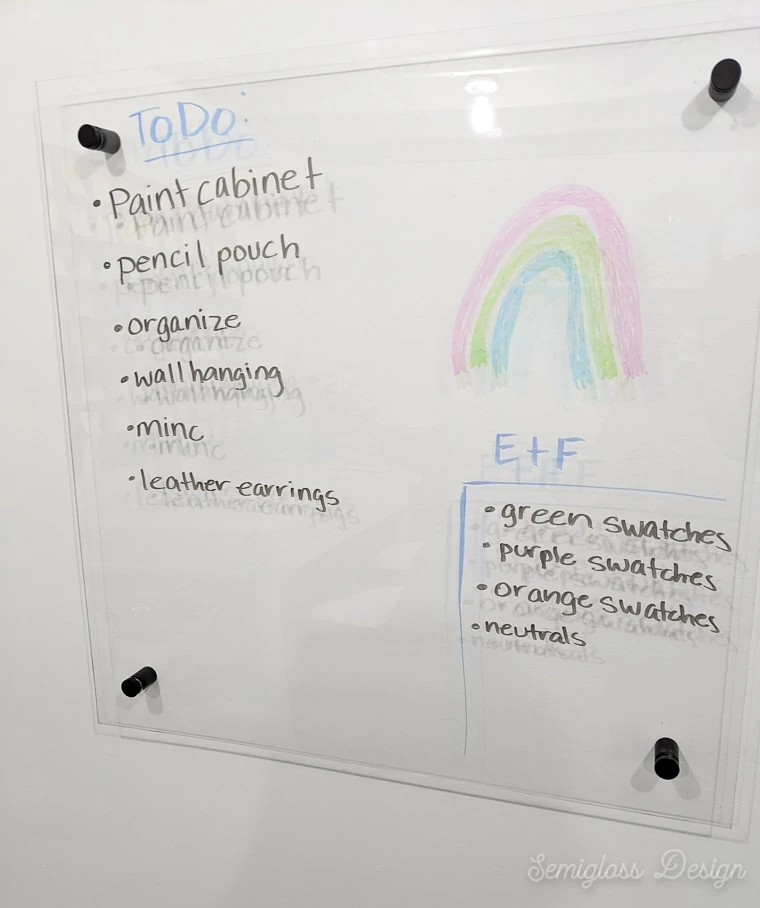 ToDo:
• Paint cabinet
• pencil pouch
• organize
• wall hanging
• minc
• leather earrings
E+F
• green swatches
• purple swatches
• orange swatches
• neutrals
Semigloss Design